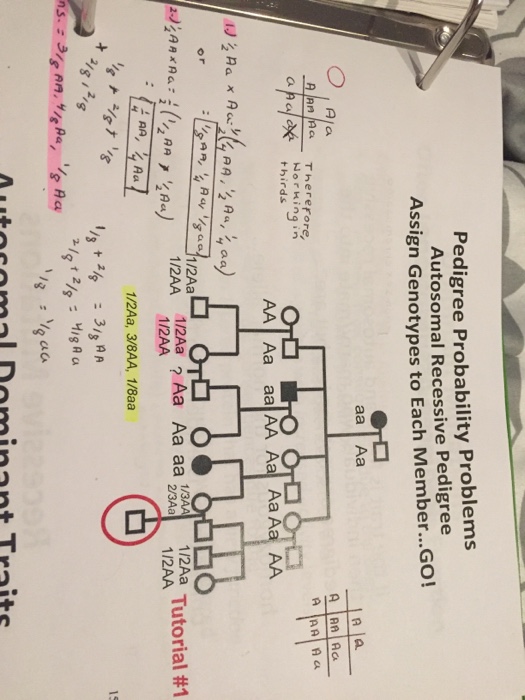 Pedigree Probability Problems
Autosomal Recessive Pedigree
Assign Genotypes to Each Member...GO!
aa Aa
AA Aa aa AA Aa Aa Aa AA
1/2Aa
1/2AA
1/2Aa
1/2AA
? Aa Aa aa
1/3AA
2/3Aa
1/2Aa
1/2AA
Tutorial #1
1/2Aa, 3/8AA, 1/8aa
A a
A AA Aa
a Aa aa
Therefore,
Working in
thirds
A a
A AA Aa
A AA Aa
1.) 1/2 Aa x Aa = 1/2 (1/4 AA, 1/2 Aa, 1/4 aa)
= 1/8 AA, 1/4 Aa, 1/8 aa
or
2.) 1/2 AA x Aa = 1/2 (1/2 AA, 1/2 Aa)
= 1/4 AA, 1/4 Aa
1/8 + 2/8 + 1/8
+ 2/8, 2/8
ns. = 3/8 AA, 4/8 Aa, 1/8 Aa
1/8 + 2/8 = 3/8 AA
2/8 + 2/8 = 4/8 Aa
1/8 = 1/8 aa
Autosomal Dominant Traits